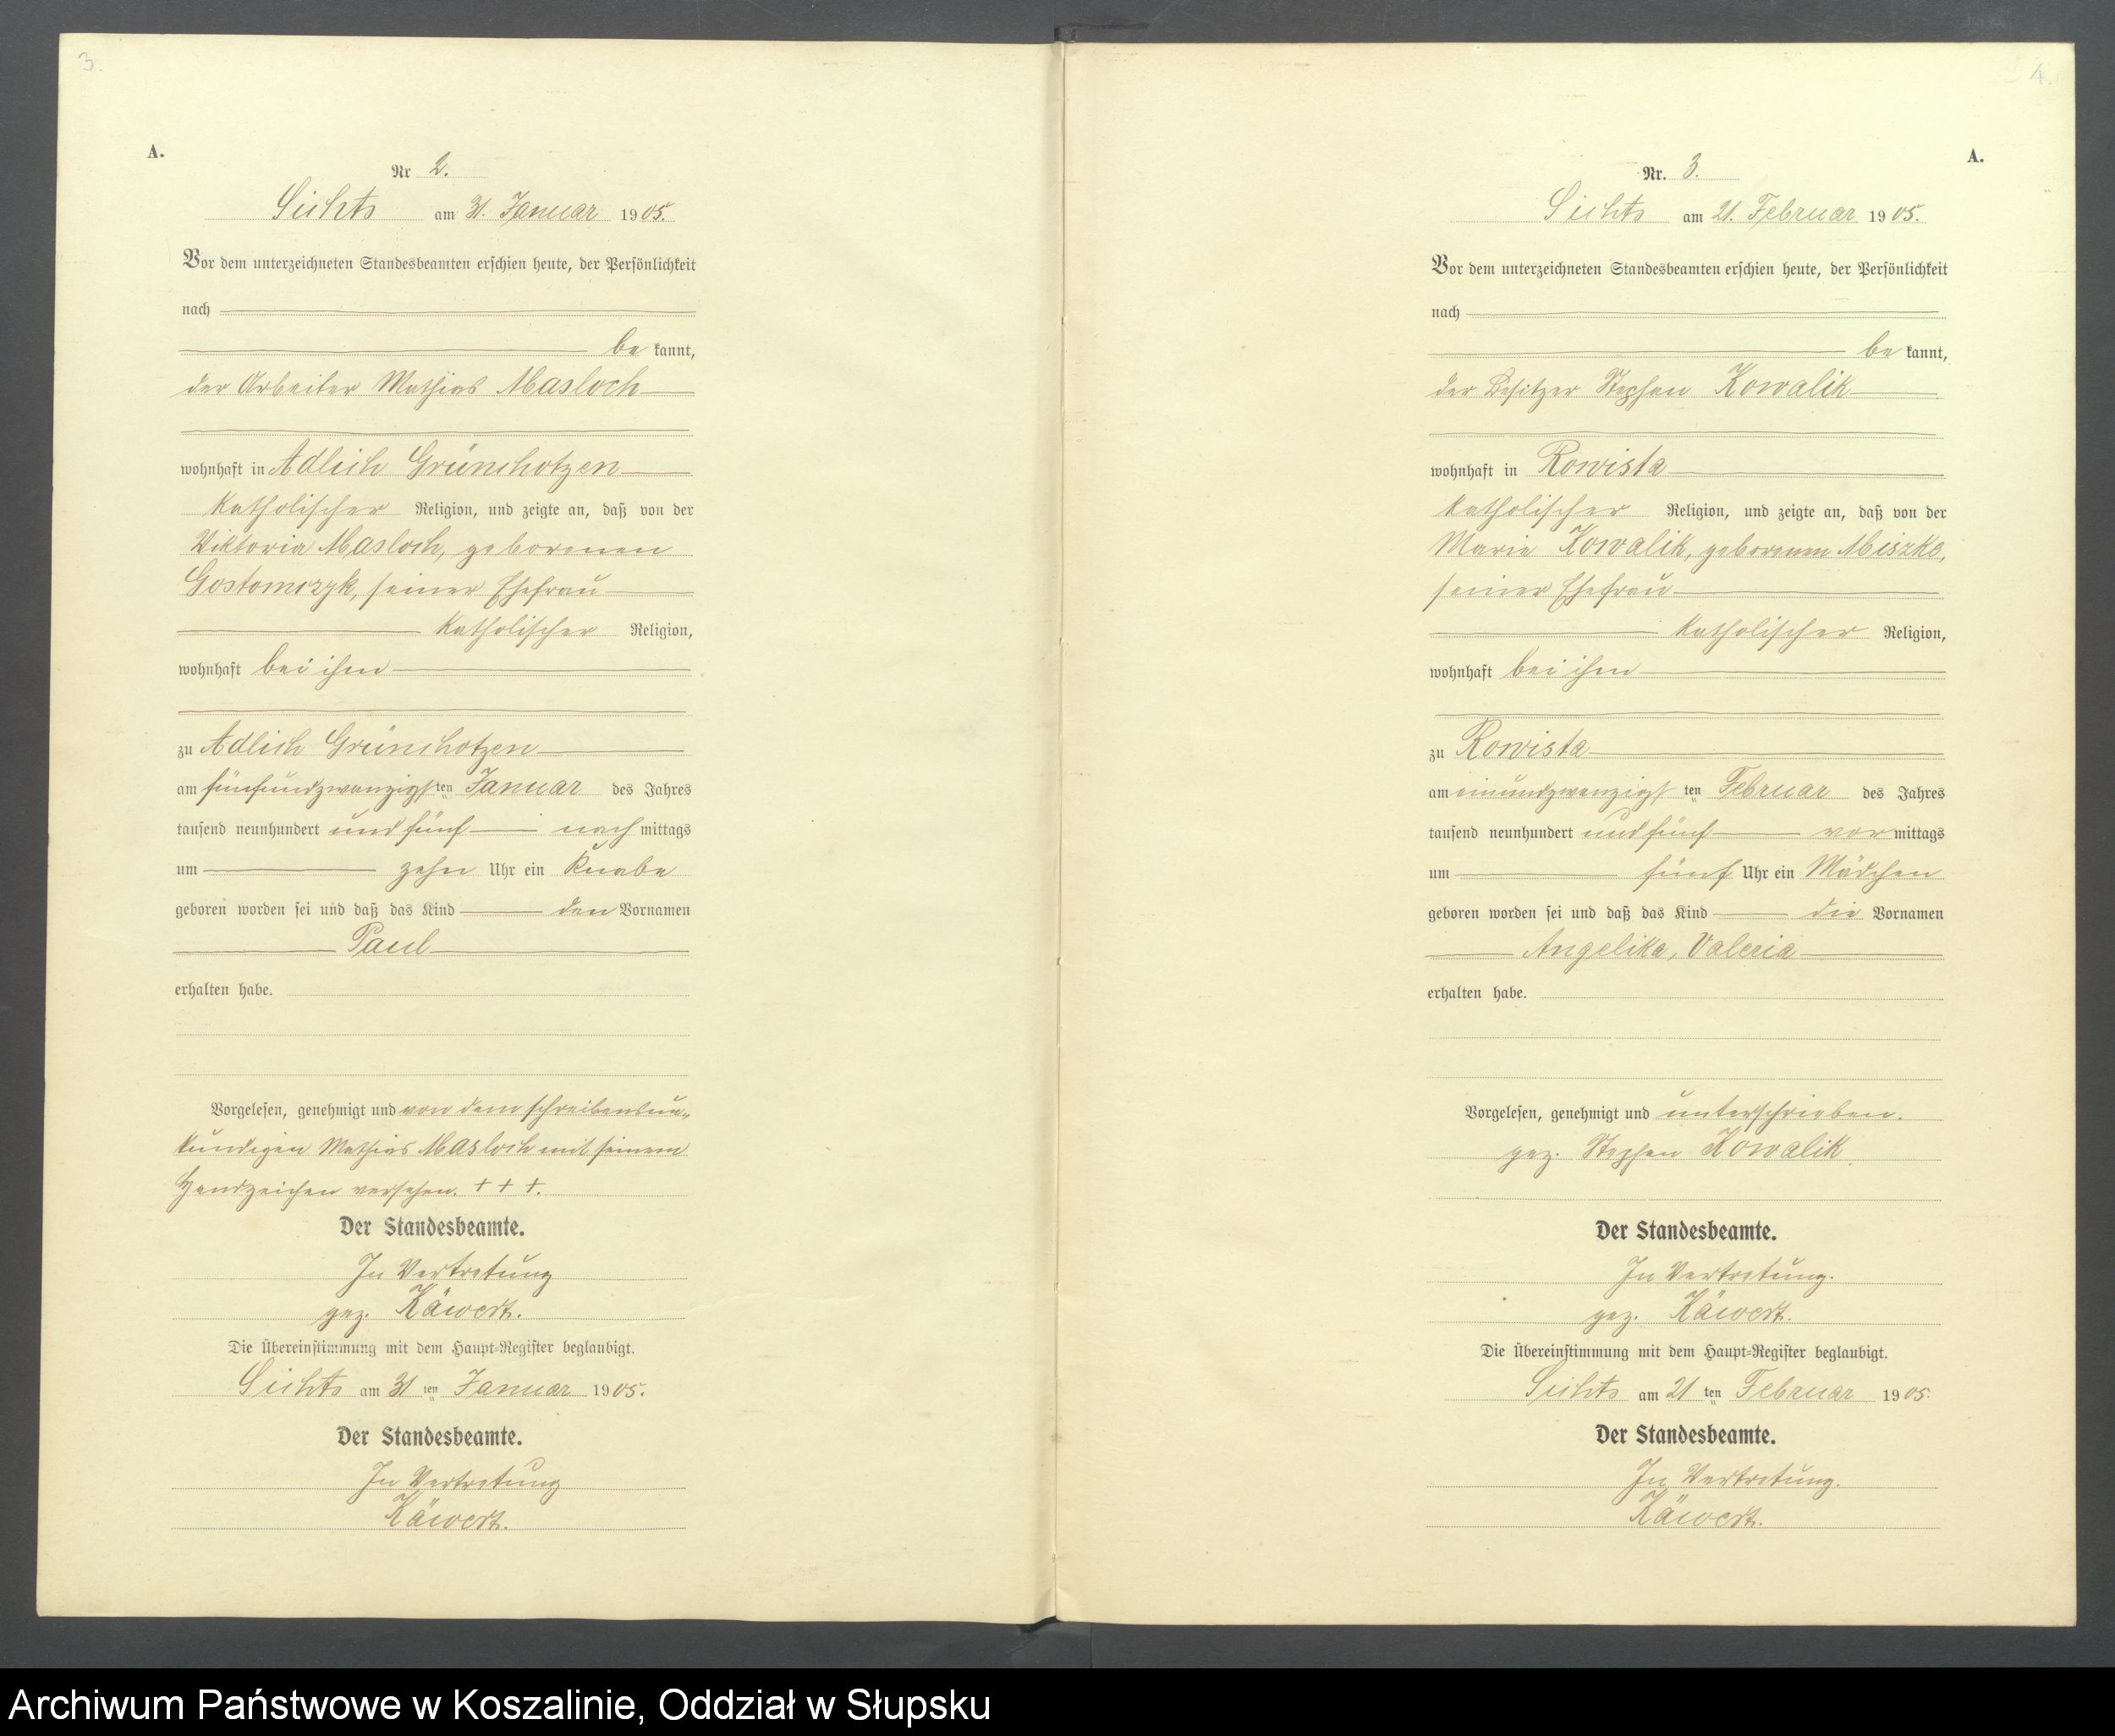 3.
A.
Nr 2.
Lichts am 31. Januar 1905.
Vor dem unterzeichneten Standesbeamten erschien heute, der Persönlichkeit
nach
be kannt,
der Arbeiter Mathias Masloch
wohnhaft in Adlich Grünchotzen
katholischer Religion, und zeigte an, daß von der
Viktoria Masloch, geborenen
Gostomczyk, seiner Ehefrau
katholischer Religion,
wohnhaft bei ihm
zu Adlich Grünchotzen
am fünfundzwanzigsten Januar des Jahres
tausend neunhundert und fünf nach mittags
um zehn Uhr ein Knabe
geboren worden sei und daß das Kind den Vornamen
Paul
erhalten habe.
Vorgelesen, genehmigt und von dem schreibensun„
kundigen Mathias Masloch mit seinem
Handzeichen versehen. + + +.
Der Standesbeamte.
In Vertretung
gez. Käwert.
Die Übereinstimmung mit dem Haupt=Register beglaubigt.
Lichts am 31 ten Januar 1905.
Der Standesbeamte.
In Vertretung
Käwert.
4.
A.
Nr. 3.
Lichts am 21. Februar 1905.
Vor dem unterzeichneten Standesbeamten erschien heute, der Persönlichkeit
nach
be kannt,
der Besitzer Stephan Kowalik
wohnhaft in Rowista
katholischer Religion, und zeigte an, daß von der
Maria Kowalik, geborenen Miszke,
seiner Ehefrau
katholischer Religion,
wohnhaft bei ihm
zu Rowista
am einundzwanzigsten Februar des Jahres
tausend neunhundert und fünf vor mittags
um fünf Uhr ein Mädchen
geboren worden sei und daß das Kind die Vornamen
Angelika, Valeria
erhalten habe.
Vorgelesen, genehmigt und unterschrieben.
gez. Stephan Kowalik.
Der Standesbeamte.
In Vertretung.
gez. Käwert.
Die Übereinstimmung mit dem Haupt=Register beglaubigt.
Lichts am 21 ten Februar 1905.
Der Standesbeamte.
In Vertretung.
Käwert.
Archiwum Państwowe w Koszalinie, Oddział w Słupsku